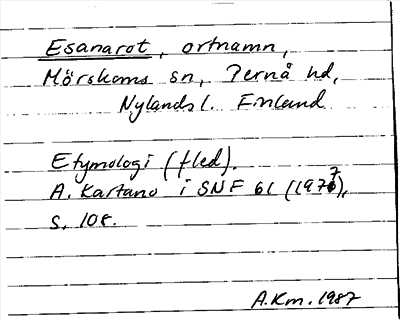 Esanarot, ortnamn,
Mörskoms sn, Pernå hd,
Nylands l. Finland
Etymologi (fled).
A. Kartano i SNF 61 (1977),
s. 108.
A.Km. 1987